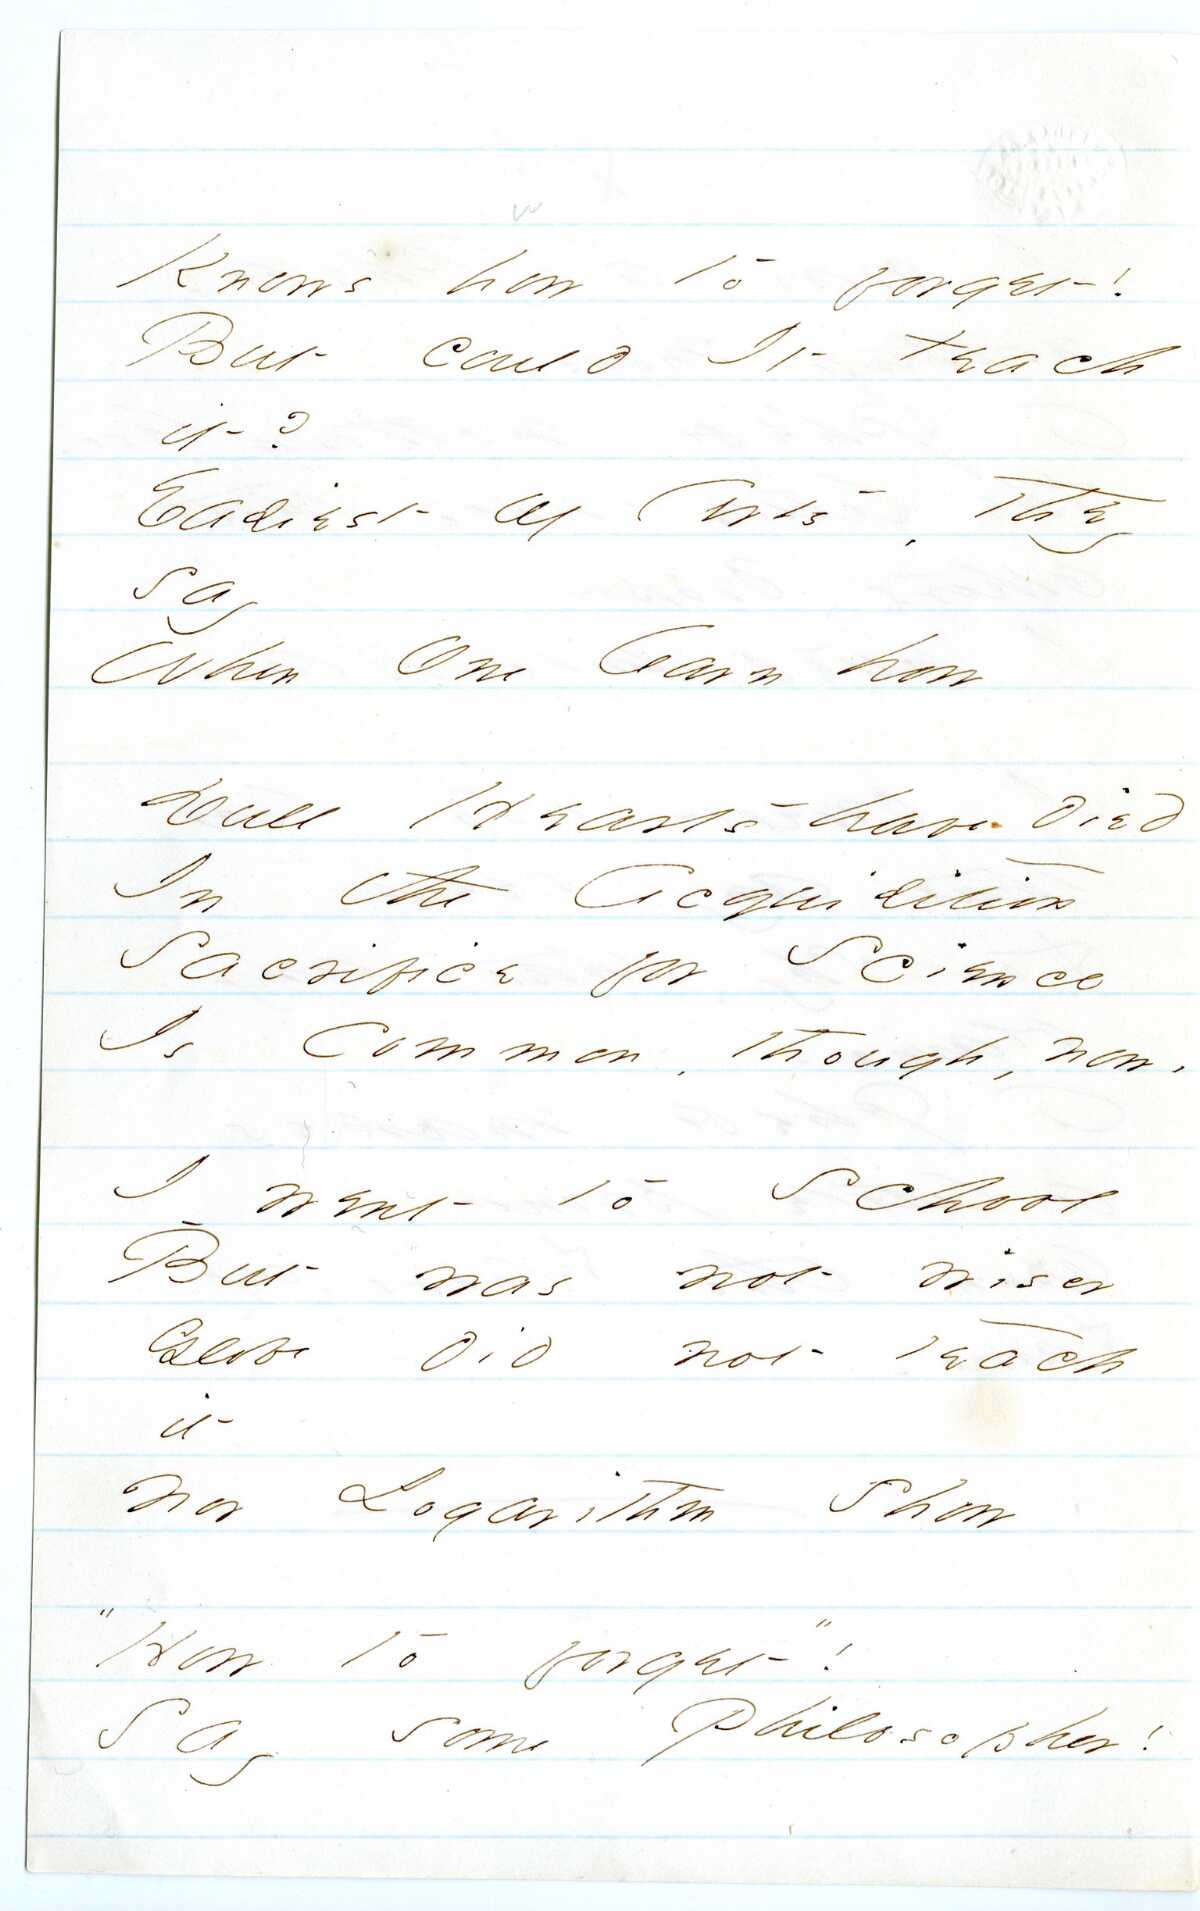 Knows how to forget!
But could It teach
it?
Easiest of Arts, They
say
When One learn how
Dull Hearts have died
In the Acquisition
Sacrifice for Science
Is Common, though, now.
I went to School
But was not wiser
Globe did not teach
it
Nor Logarithm Show
"How to forget"!
Say some Philosopher!